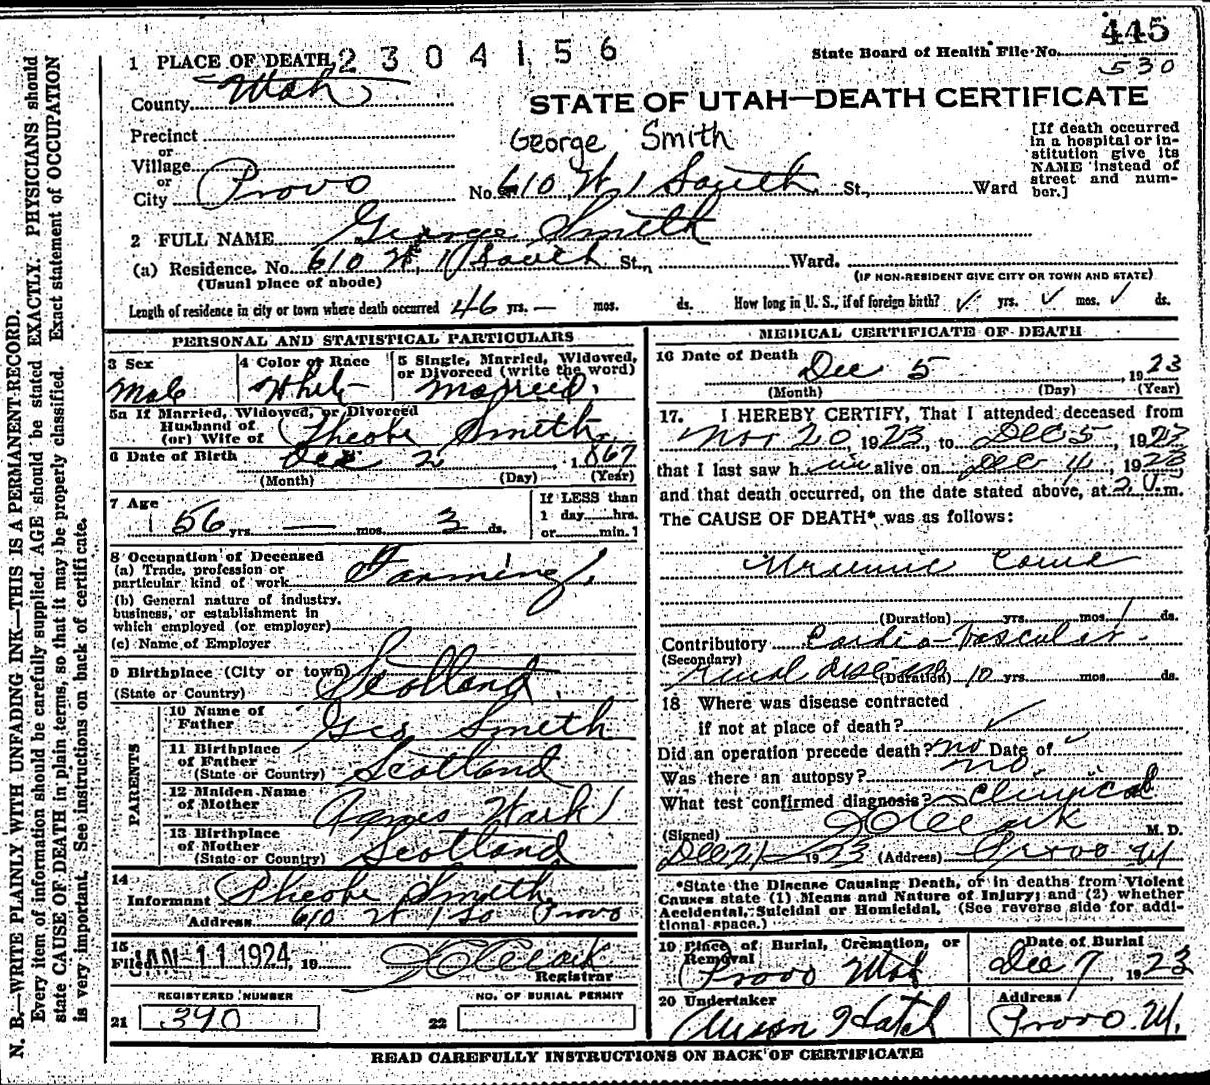 445
State Board of Health File No.
530
1 PLACE OF DEATH 2304156
County Utah
STATE OF UTAH—DEATH CERTIFICATE
Precinct
or
Village
or
City Provo
George Smith
No. 610 W 1 South St., Ward
[If death occurred
in a hospital or in-
stitution give its
NAME instead of
street and num-
ber.]
2 FULL NAME George Smith
(a) Residence. No. 610 W 1 South St., Ward.
(Usual place of abode)
(IF NON-RESIDENT GIVE CITY OR TOWN AND STATE)
Length of residence in city or town where death occurred 46 yrs. — mos. ds. How long in U. S., if of foreign birth? ✓ yrs. ✓ mos. ✓ ds.
PERSONAL AND STATISTICAL PARTICULARS
3 Sex
Male
4 Color or Race
White
5 Single, Married, Widowed,
or Divorced (write the word)
Married
5a If Married, Widowed, or Divorced
Husband of
(or) Wife of Pheobe Smith
6 Date of Birth Dec 2, 1867
(Month) (Day) (Year)
7 Age
56 yrs. — mos. 3 ds.
If LESS than
1 day hrs.
or min.?
8 Occupation of Deceased
(a) Trade, profession or
particular kind of work Farming
(b) General nature of industry,
business, or establishment in
which employed (or employer)
(c) Name of Employer
9 Birthplace (City or town)
(State or Country) Scotland
PARENTS
10 Name of
Father Geo Smith
11 Birthplace
of Father
(State or Country) Scotland
12 Maiden Name
of Mother Agnes Wark
13 Birthplace
of Mother
(State or Country) Scotland
14
Informant Pheobe Smith
Address 610 W 1 So Provo
15
Filed JAN 11 1924, 19
Registrar
REGISTERED NUMBER
21 390
NO. OF BURIAL PERMIT
22
MEDICAL CERTIFICATE OF DEATH
16 Date of Death
Dec 5, 1923
(Month) (Day) (Year)
17. I HEREBY CERTIFY, That I attended deceased from
Nov 20, 1923, to Dec 5, 1923
that I last saw him alive on Dec 4, 1923
and that death occurred, on the date stated above, at m.
The CAUSE OF DEATH* was as follows:
Uraemic Coma
(Duration) yrs. mos. 1 ds.
Contributory Cardio-Vascular-
(Secondary)
renal disease (Duration) 10 yrs. mos. ds.
18 Where was disease contracted
if not at place of death? ✓
Did an operation precede death? no Date of ✓
Was there an autopsy? no
What test confirmed diagnosis? Clinical
(Signed) Clark M. D.
1923 (Address) Provo U
*State the Disease Causing Death, or in deaths from Violent
Causes state (1) Means and Nature of Injury; and (2) whether
Accidental, Suicidal or Homicidal. (See reverse side for addi-
tional space.)
19 Place of Burial, Cremation, or
Removal
Provo Utah
Date of Burial
Dec 7 1923
20 Undertaker
Hatch
Address
Provo U.
READ CAREFULLY INSTRUCTIONS ON BACK OF CERTIFICATE
N. B.—WRITE PLAINLY WITH UNFADING INK—THIS IS A PERMANENT RECORD.
Every item of information should be carefully supplied. AGE should be stated EXACTLY. PHYSICIANS should
state CAUSE OF DEATH in plain terms, so that it may be properly classified. Exact statement of OCCUPATION
is very important. See instructions on back of certificate.